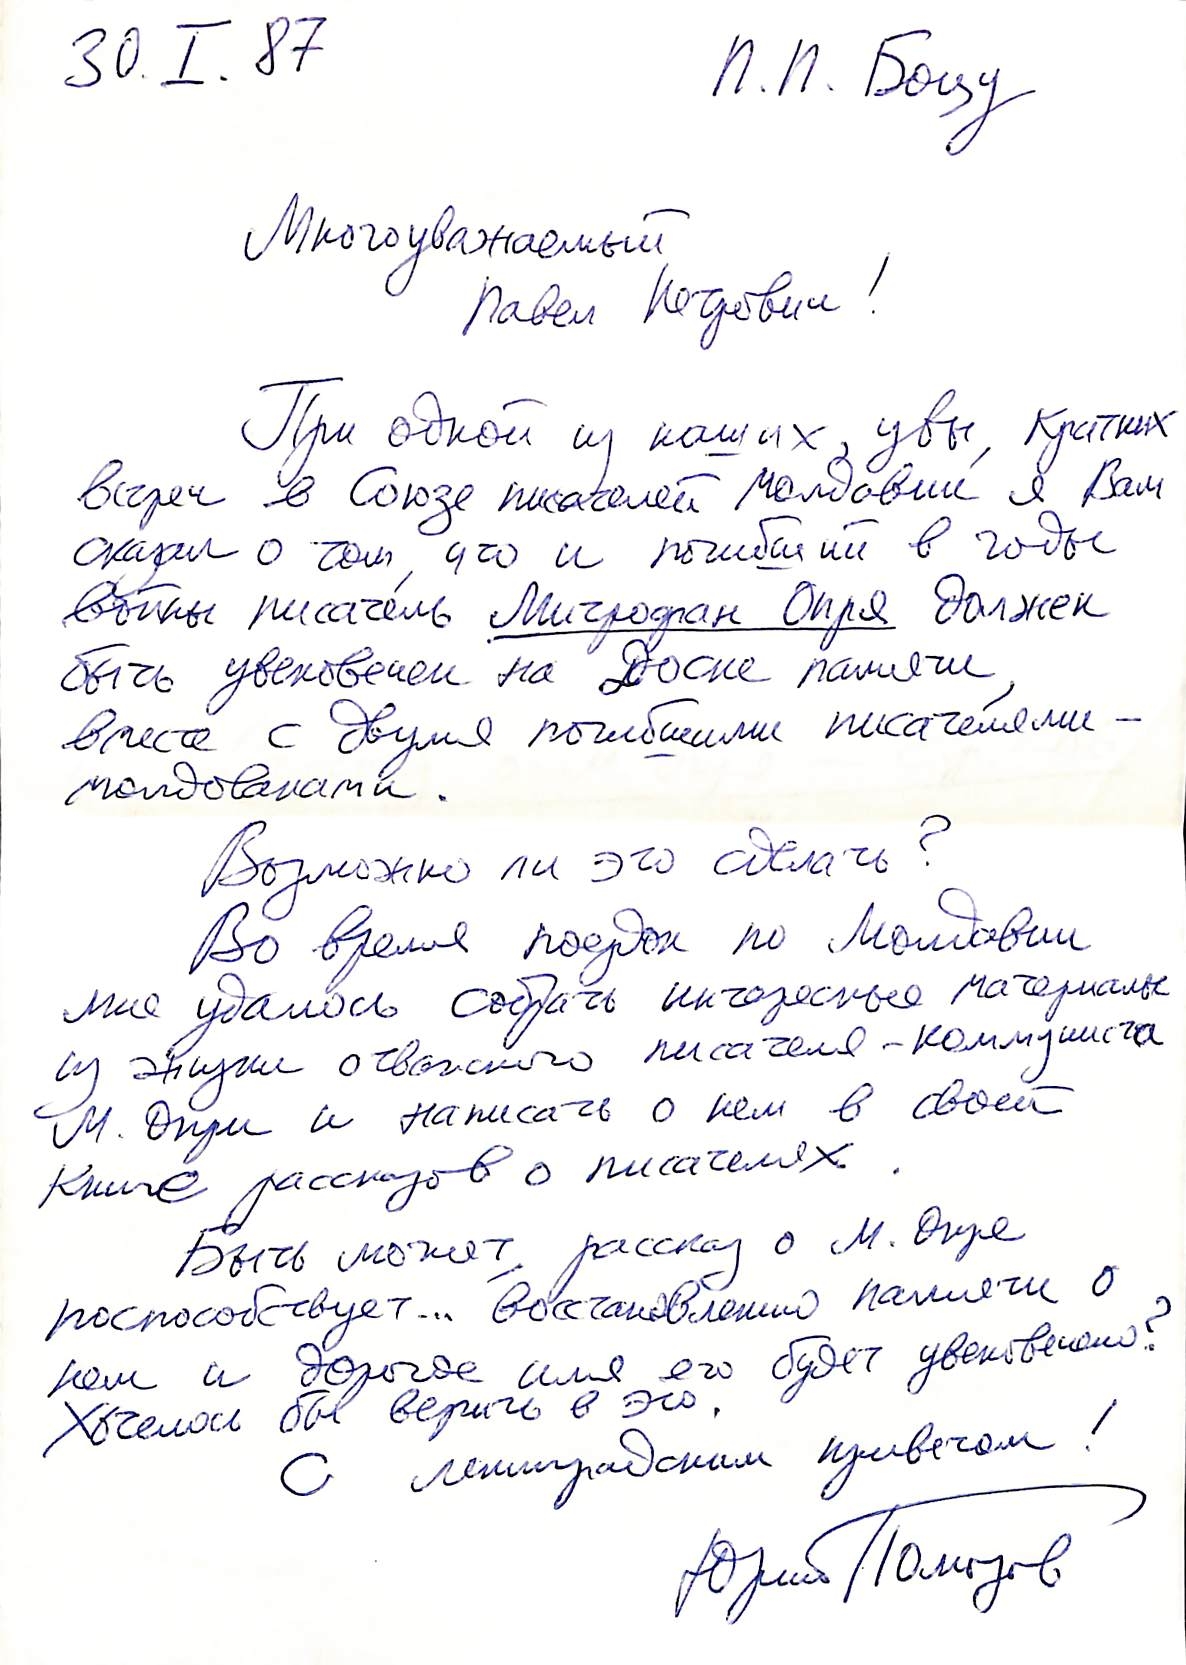 30.I.87
П.П. Боцу
Многоуважаемый
Павел Петрович!
При одной из наших, увы, кратких
встреч в Союзе писателей Молдавии я Вам
сказал о том, что и погибший в годы
войны писатель Митрофан Опря должен
быть увековечен на Доске памяти,
вместе с двумя погибшими писателями-
молдованами.
Возможно ли это сделать?
Во время поездок по Молдавии
мне удалось собрать интересные материалы
из жизни отважного писателя-коммуниста
М. Опри и написать о нем в своей
Книге рассказов о писателях.
Быть может, рассказ о М. Опре
поспособствует... восстановлению памяти о
нем и дорогое имя его будет увековечено?
Хотелось бы верить в это.
С ленинградским приветом!
Юрий Помозов